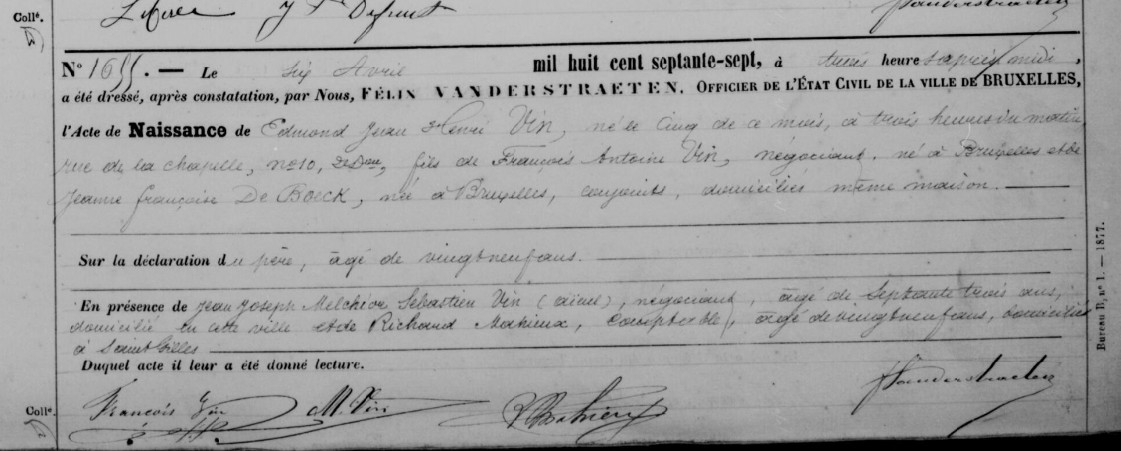 Collé.
Vanderstraeten
N° 1655. — Le six Avril mil huit cent septante-sept, à heures après midi,
a été dressé, après constatation, par Nous, FÉLIX VANDERSTRAETEN, OFFICIER DE L'ÉTAT CIVIL DE LA VILLE DE BRUXELLES,
l'Acte de Naissance de Edmond Jean Henri Vin, né le cinq de ce mois, à trois heures du matin,
rue de la chapelle, n° 10, 3e Don, fils de François Antoine Vin, négociant, né à Bruxelles et de
Jeanne françoise De Boeck, née à Bruxelles, conjoints, domiciliés même maison. —
Sur la déclaration du père, âgé de vingt neuf ans.
En présence de Jean Joseph Melchior Sébastien Vin (aïeul), négociant, âgé de Septante trois ans,
domicilié en cette ville et de Richard Mahieux, comptable, âgé de vingt neuf ans, domicilié
à Saint Gilles —
Duquel acte il leur a été donné lecture.
François Vin M. Vin R Mahieux Vanderstraeten
Collé.
Bureau B, n° 1. — 1877.